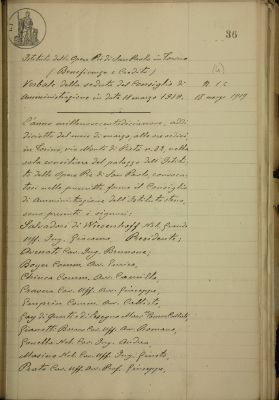 36
Istituto delle Opere Pie di San Paolo in Torino
(Beneficenza e Credito)
Verbale della seduta del Consiglio di
Amministrazione in data 18 marzo 1919.
18 marzo 1919
L'anno millenovecentodiciannove, addì
diciotto del mese di marzo, alle ore sedici,
in Torino, via Monte di Pietà n. 32, nella
sala consiliare del palazzo dell'Istituto
delle Opere Pie di San Paolo, convocato
nella prescritta forma il Consiglio
di Amministrazione dell'Istituto stesso,
sono presenti i signori:
Salvadori di Wiesenhoff Nob. Grande
Uff. Ing. Giacomo Presidente;
Cav. Ing. Bernone;
Boyer Comm. Avv. Enrico,
Chiesa Comm. Avv. Camillo,
Cravina Cav. Uff. Avv. Giuseppe,
Comm. Avv. Calisto,
Gay di Quarti
Gianotti Cav. Uff. Avv. Romano,
Gonella Nob. Cav. Ing. Andrea,
Masino Nob. Cav. Uff. Ing.
Prato Cav. Uff. Avv. Prof. Giuseppe,